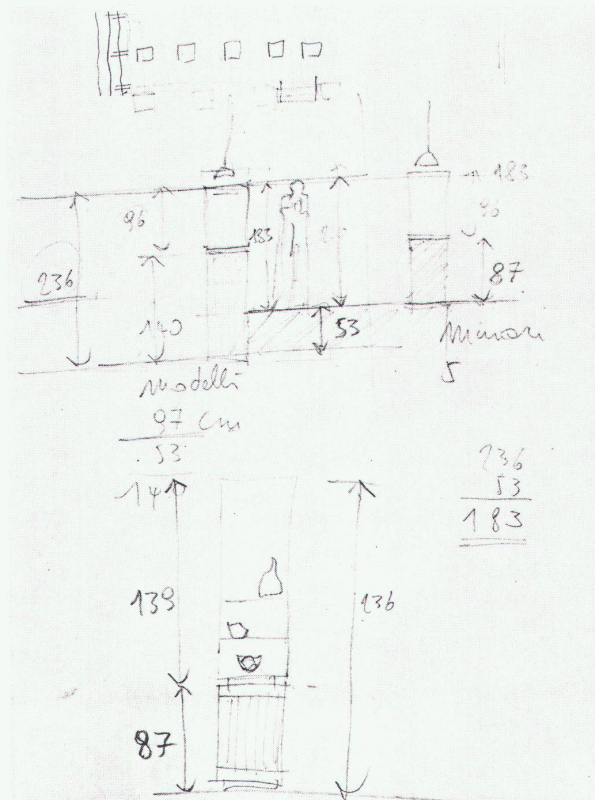 183
96
96
183
236
87
140
53
modelli
5
97 cm
53
236
53
183
139
236
87